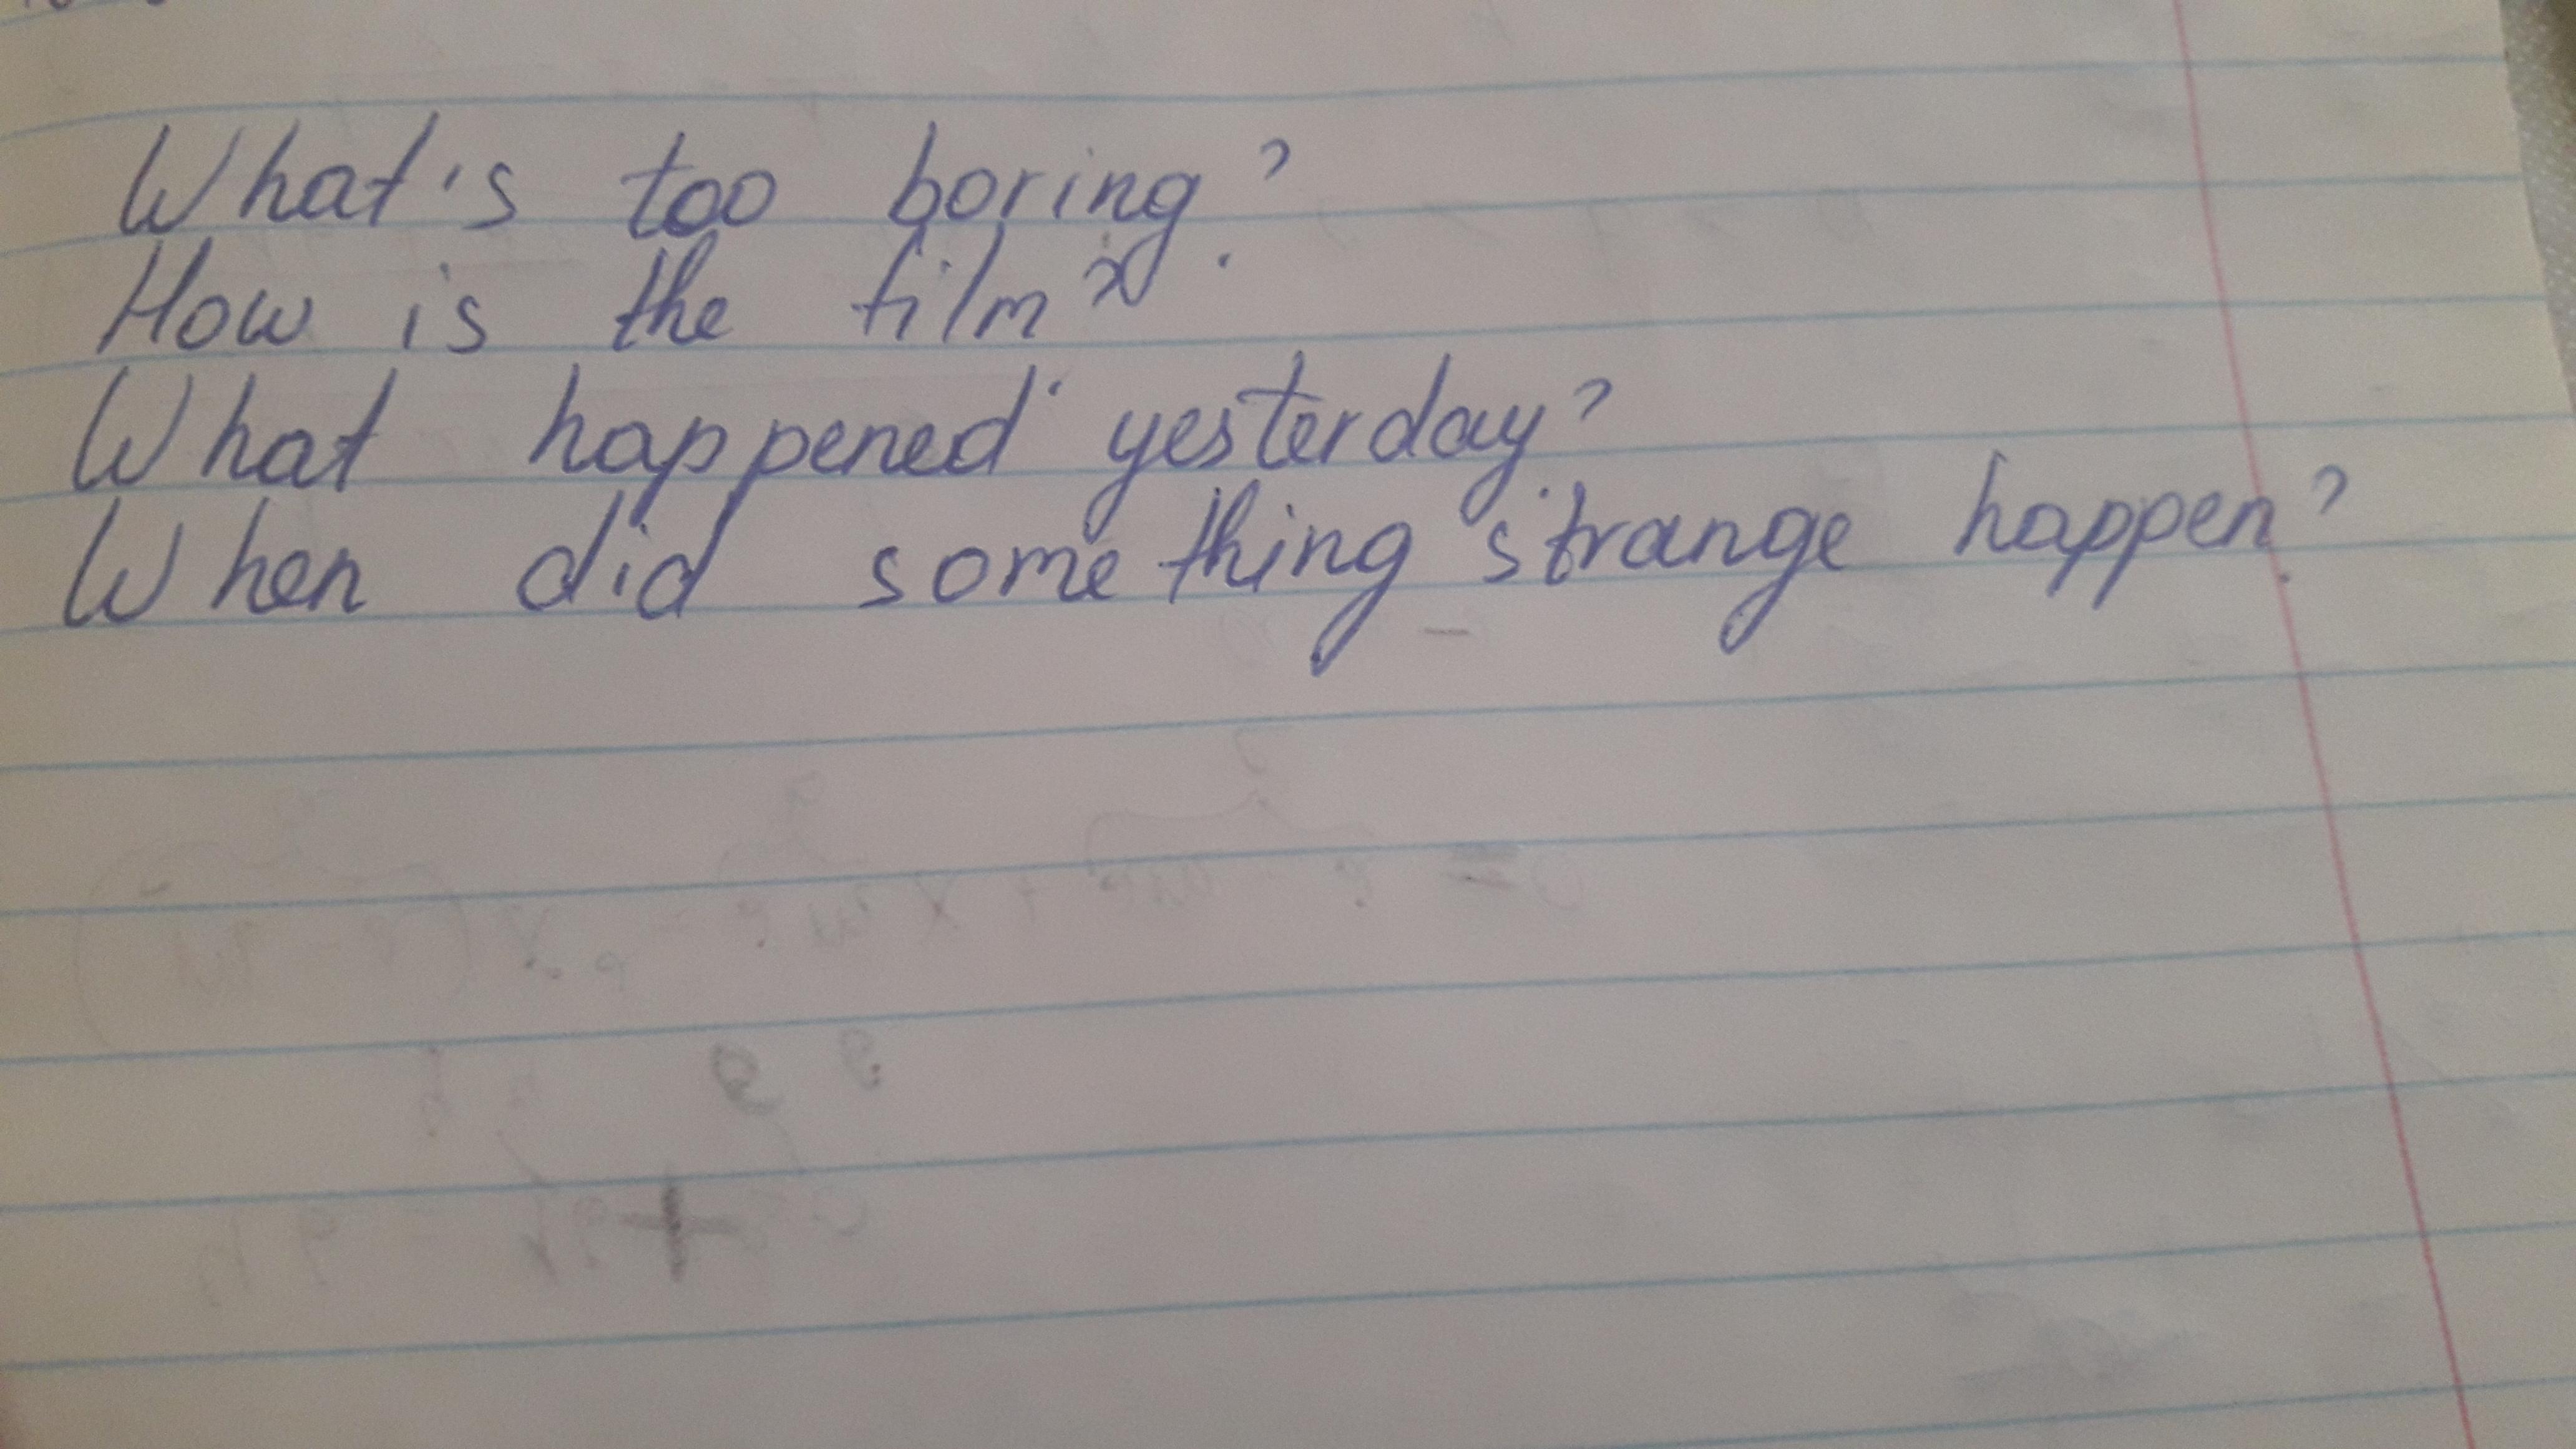 What's too boring?
How is the film?
What happened yesterday?
When did something strange happen?